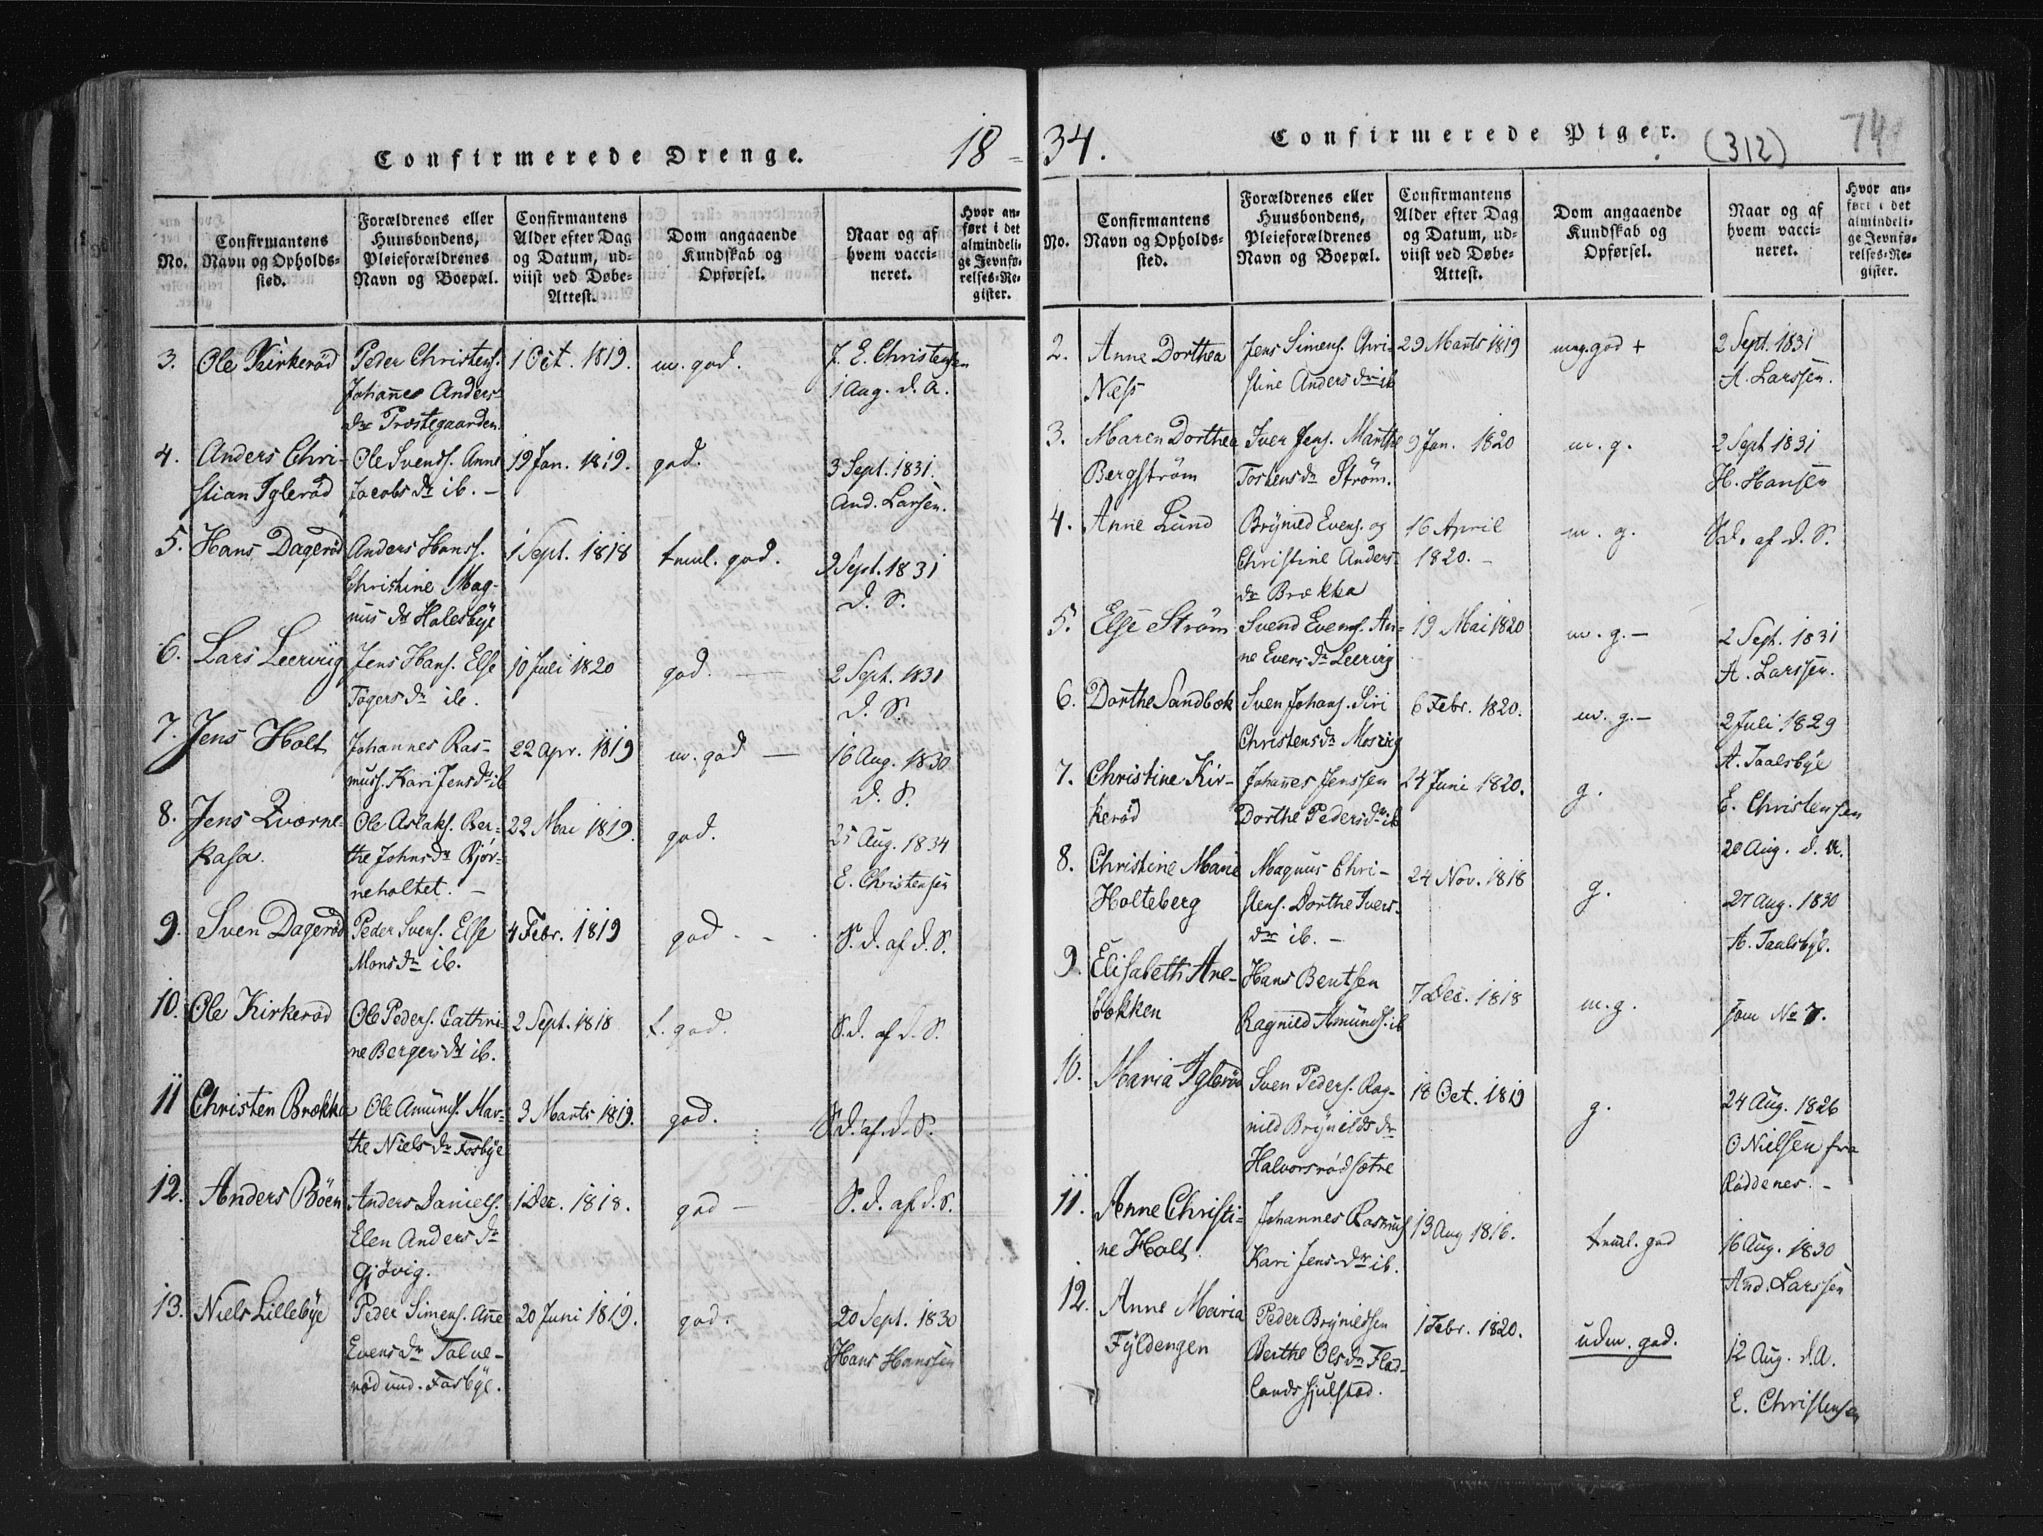 Confirmerede Drenge.
18-
No.
Confirmantens
Navn og Opholds-
sted.
Forældrenes eller
Huusbondens,
Pleieforældrenes
Navn og Boepæl.
Confirmantens
Alder efter Dag
og Datum, ud-
viist ved Døbe-
Attest.
Dom angaaende
Kundskab og
Opførsel.
Naar og af
hvem vacci-
neret.
Hvor an-
ført i det
almindeli-
ge Jevnfø-
relses-Re-
gister.
3. Ole Kirkerød
Peder Christens.
Johanne Anders-
dr Præstegaarden
1 Oct. 1819.
m. god.
E. Christensen
1 Aug. d. A.
4. Anders Chri-
stian Iglerød
Ole Svends. Anne
Jacobs dr ib. -
19 Jan. 1819.
god.
3 Sept. 1831.
And. Larsen.
5. Hans Dagerød
Anders Hans.
Christine Mag-
nus dr Halesbye
1 Sept. 1818
temml. god.
2 Sept. 1831
d. S.
6. Lars Leervig
Jens Hans. Else
Tøgers dr ib.
10 Juli 1820
god. -
2 Sept. 1831
d. S.
7. Jens Holt
Johannes Ras-
muss. Kari Jens dr ib
22 Apr. 1819
m. god -
16 Aug. 1830
d. S.
8. Jens Qværne-
kasa.
Ole Aslaks. Ber-
the Johns dr Bjør-
neholtet. -
22 Mai 1819.
god.
25 Aug. 1834
E. Christensen
9. Sven Dagerød
Peder Svens. Else
Mons dr ib.
4 Febr. 1819
god. -
S. d. af d. S.
10. Ole Kirkerød
Ole Peders. Cathri-
ne Berger dr ib.
2 Sept. 1818
t. god.
S. d. af d. S.
11 Christen Brække
Ole Amunds. Mar-
the Niels dr Fosbye
3 Marts 1819.
god.
S. d. af d. S.
12. Anders Böen
Anders Daniels.
Elen Anders dr
Gjövig.
1 Dec. 1818.
god -
S. d. af d. S.
13. Niels Lillebye
Peder Simens. Anne
Evens dr Tolve-
rød und. Fosbye.
20 Juni 1819.
god.
20 Sept. 1830
Hans Hanssen
34.
Confirmerede Piger.
(312)
74
No.
Confirmantens
Navn og Opholds-
sted.
Forældrenes eller
Huusbondens,
Pleieforældrenes
Navn og Boepæl.
Confirmantens
Alder efter Dag
og Datum, ud-
viist ved Døbe-
Attest.
Dom angaaende
Kundskab og
Opførsel.
Naar og af
hvem vacci-
neret.
Hvor an-
ført i det
almindeli-
ge Jevnfø-
relses-Re-
gister.
2. Anne Dorthea
Næss
Jens Simens. Chri-
stine Anders dr ib
29 Marts 1819
meg. god +
2 Sept. 1831
A. Larssen.
3. Maren Dorthea
Bergström
Iver Jens. Marthe
Torstens dr Ström.
9 Jan. 1820
m. g.
2 Sept 1831
H. Hansen
4. Anne Lund
Brynild Evens. og
Christine Anders-
dr Brække
16 April
1820. -
m. g.
S. d. af d. S.
5. Else Strøm
Svend Evens. An-
ne Evens dr Leervig
19 Mai 1820
m. g. -
2 Sept. 1831
A. Larssen.
6. Dorthe Sandbæk
Sven Johans. Siri
Christens dr Mosvig
6 Febr. 1820.
m. g. -
2 Juli 1829
A. Taalsbye
7. Christine Kir-
kerød
Johannes Jenssen
Dorthe Peders dr ib
24 Juni 1820.
g.
E. Christensen
20 Aug. d. A.
8. Christine Marie
Holteberg
Magnus Chri-
stens. Dorthe Ivers-
dr ib. -
24 Nov. 1818
g.
27 Aug. 1830
A. Taalsbye.
9 Elisabeth Are-
bekken
Hans Bentsen
Ragnild Amunds. ib
7 Dec. 1818
m. g.
som No 7.
10. Maria Iglerød
Sven Peders. Rag-
nild Brynilds dr
Halvorsrødsætre
18 Oct. 1819
g.
24 Aug. 1826
O Nielsen fra
Røddenes. -
11. Anne Christi-
ne Holt.
Johannes Rasmus
Kari Jens dr ib.
13 Aug 1816.
temml. god
16 Aug. 1830
And. Larssen
12. Anne Maria
Fyldengen
Peder Brynildsen
Berthe Ols dr Flad-
lands hjulstad.
1 Febr. 1820.
udm. god.
12 Aug. d. A.
E. Christensen